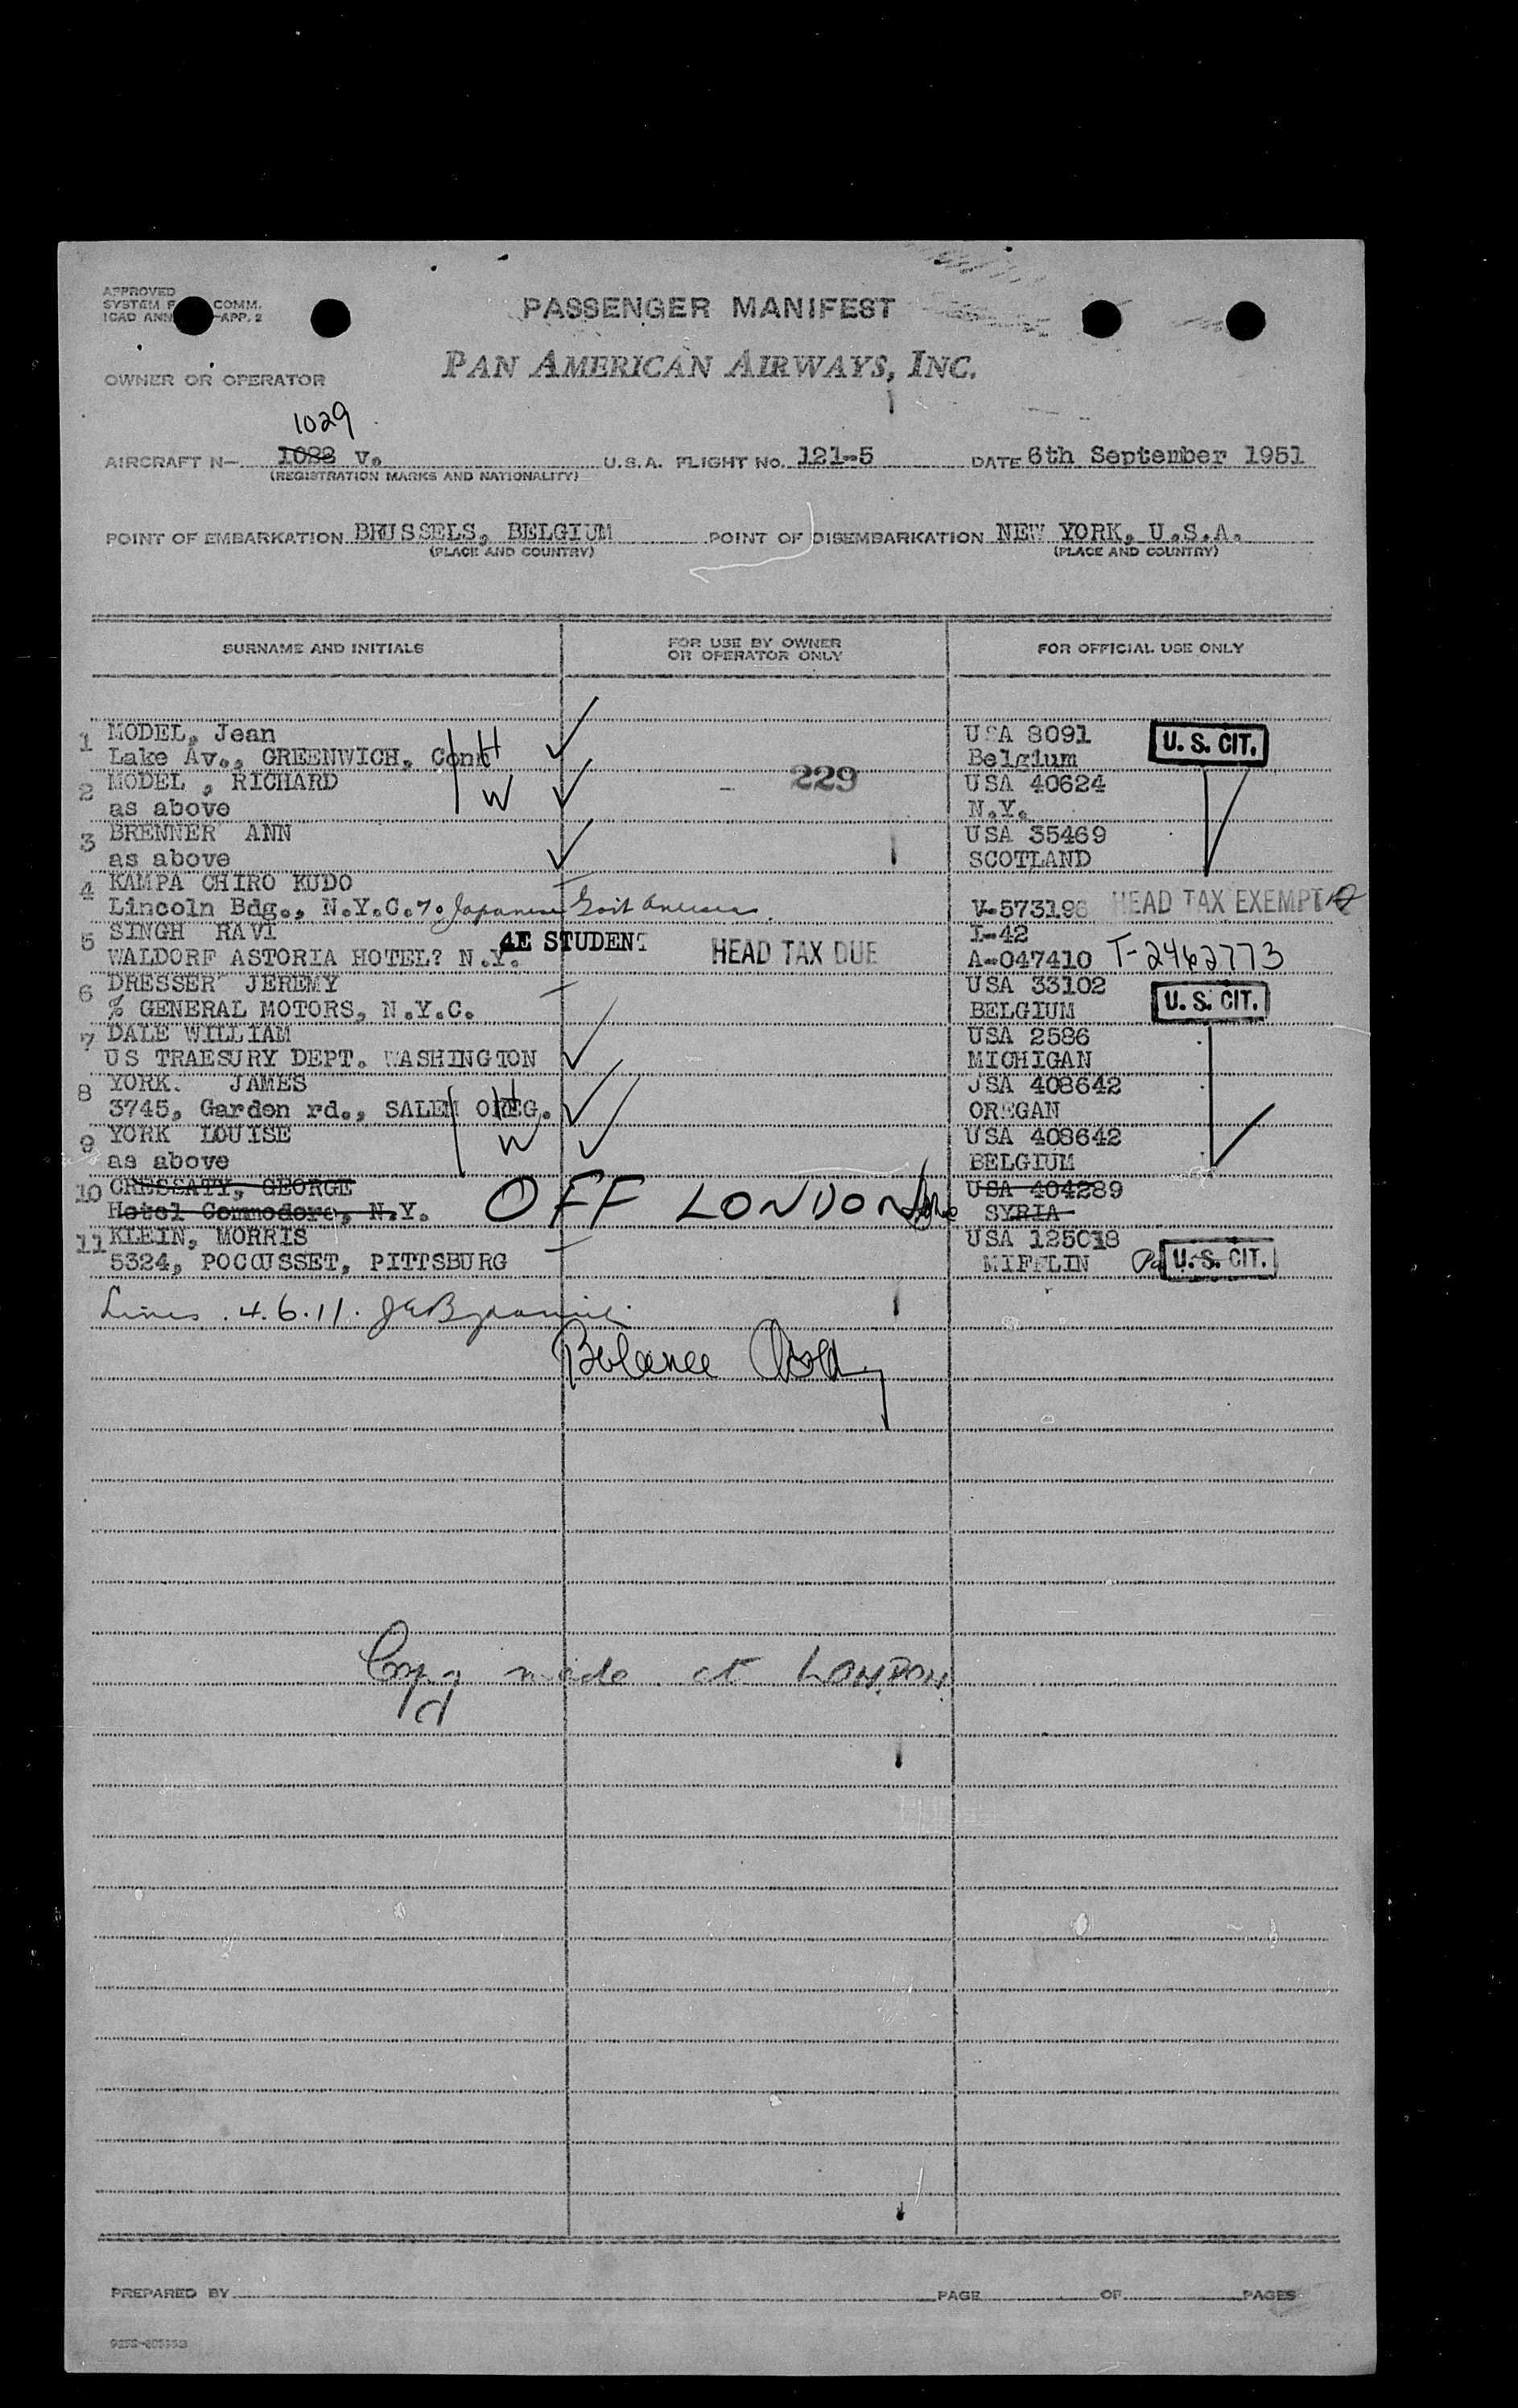 APPROVED
SYSTEM F COMM.
ICAO ANN -APP. 2
PASSENGER MANIFEST
PAN AMERICAN AIRWAYS, INC.
OWNER OR OPERATOR
1029
AIRCRAFT N- 1088 V. U.S.A. FLIGHT NO. 121-5 DATE 6th September 1951
(REGISTRATION MARKS AND NATIONALITY)
POINT OF EMBARKATION BRUSSELS, BELGIUM POINT OF DISEMBARKATION NEW YORK, U.S.A.
(PLACE AND COUNTRY) (PLACE AND COUNTRY)
SURNAME AND INITIALS FOR USE BY OWNER OR OPERATOR ONLY FOR OFFICIAL USE ONLY
1 MODEL, Jean H USA 8091 U. S. CIT.
Lake Av., GREENWICH, Conn Belgium
2 MODEL , RICHARD W 229 USA 40624
as above N.Y.
3 BRENNER ANN USA 35469
as above SCOTLAND
4 KAMPA CHIRO KUDO
Lincoln Bdg., N.Y.C.7. Japanese Govt Overseas. V-573196 HEAD TAX EXEMPT
5 SINGH RAVI 4E STUDENT HEAD TAX DUE I-42
WALDORF ASTORIA HOTEL? N.Y. A-047410 T-2462773
6 DRESSER JEREMY USA 33102 U. S. CIT.
% GENERAL MOTORS, N.Y.C. BELGIUM
7 DALE WILLIAM USA 2586
US TRAESURY DEPT. WASHINGTON MICHIGAN
8 YORK. JAMES H USA 408642
3745, Garden rd., SALEM OREG. OREGAN
9 YORK LOUISE W USA 408642
as above BELGIUM
10 CRESSATY, GEORGE OFF LONDON USA 404289
Hotel Commodore, N.Y. SYRIA
11 KLEIN, MORRIS USA 125018
5324, POCOUSSET, PITTSBURG MIFFLIN Pa U. S. CIT.
Lines . 4. 6. 11.
Balance
Copy made at LONDON
PREPARED BY PAGE OF PAGES